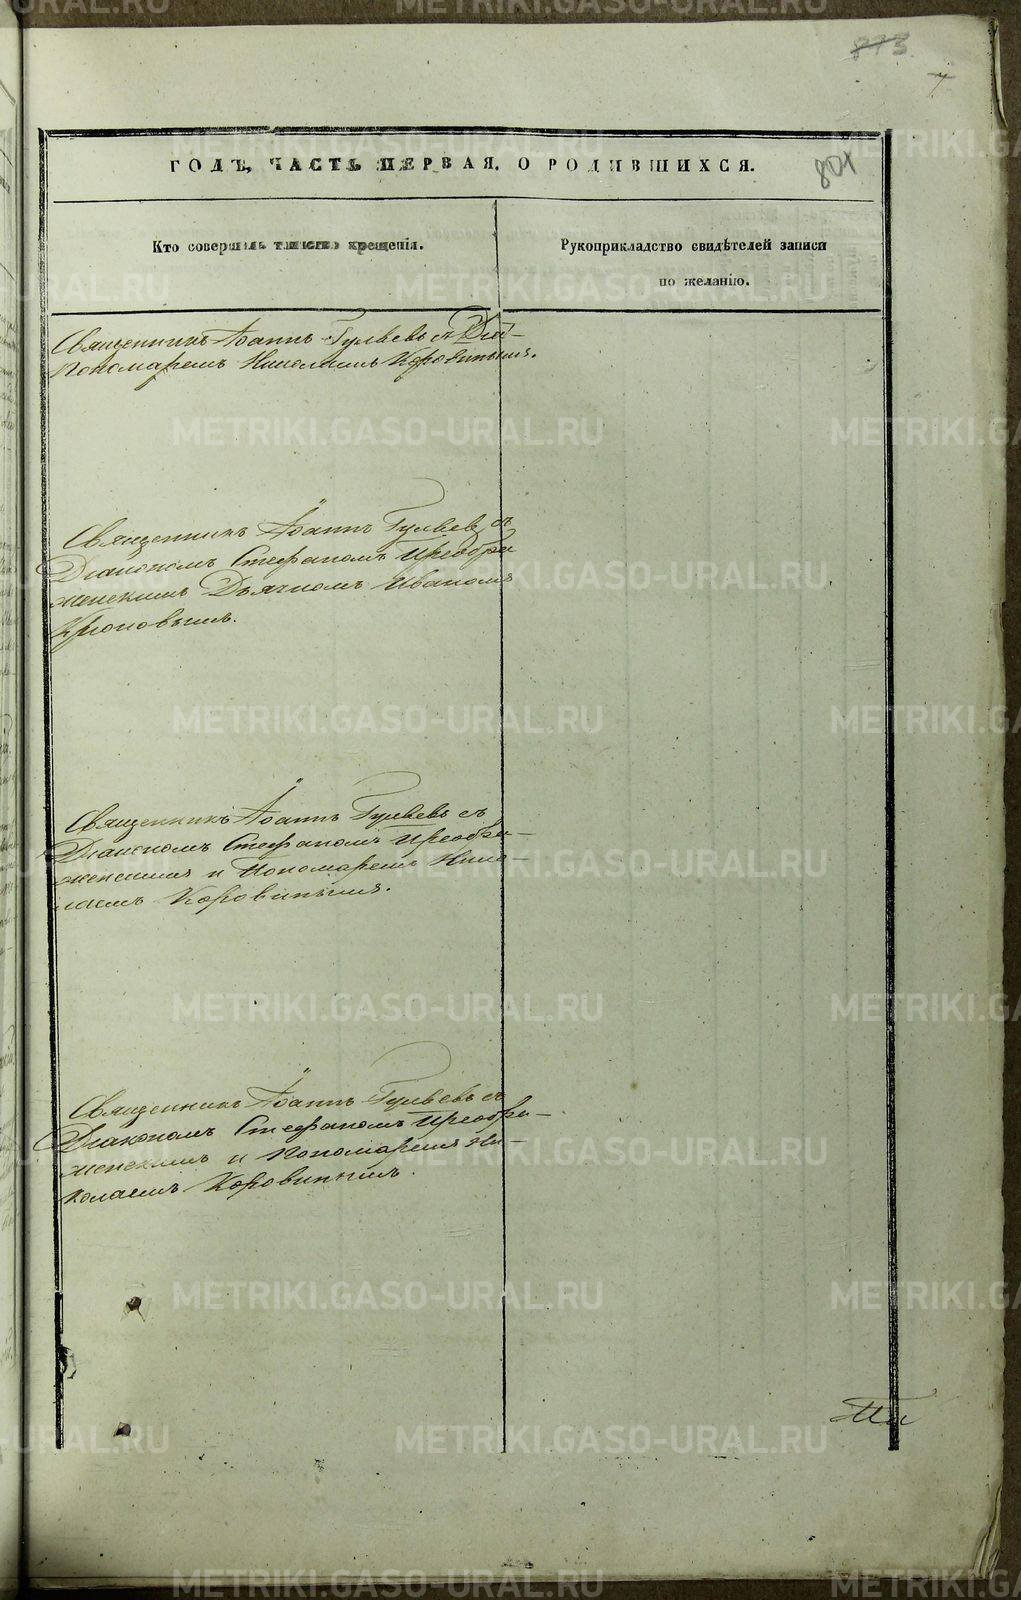 873.
7
801
ГОДЪ, ЧАСТЬ ПЕРВАЯ. О РОДИВШИХСЯ.
Кто совершалъ таинство крещенія.
Рукоприкладство свидѣтелей записи
по желанію.
Священникъ Іоаннъ Гуляевъ съ
Пономаремъ Николаемъ Коровинымъ.
Священникъ Іоаннъ Гуляевъ съ
Діакономъ Стефаномъ Преобра
женскимъ Дьячкомъ Иваномъ
Священникъ Іоаннъ Гуляевъ съ
Діакономъ Стефаномъ Преобра-
женскимъ и Пономаремъ Нико-
лаемъ Коровинымъ.
Священникъ Іоаннъ Гуляевъ съ
Діакономъ Стефаномъ Преобра-
женскимъ и Пономаремъ Ни-
колаемъ Коровинымъ.
METRIKI.GASO-URAL.RU